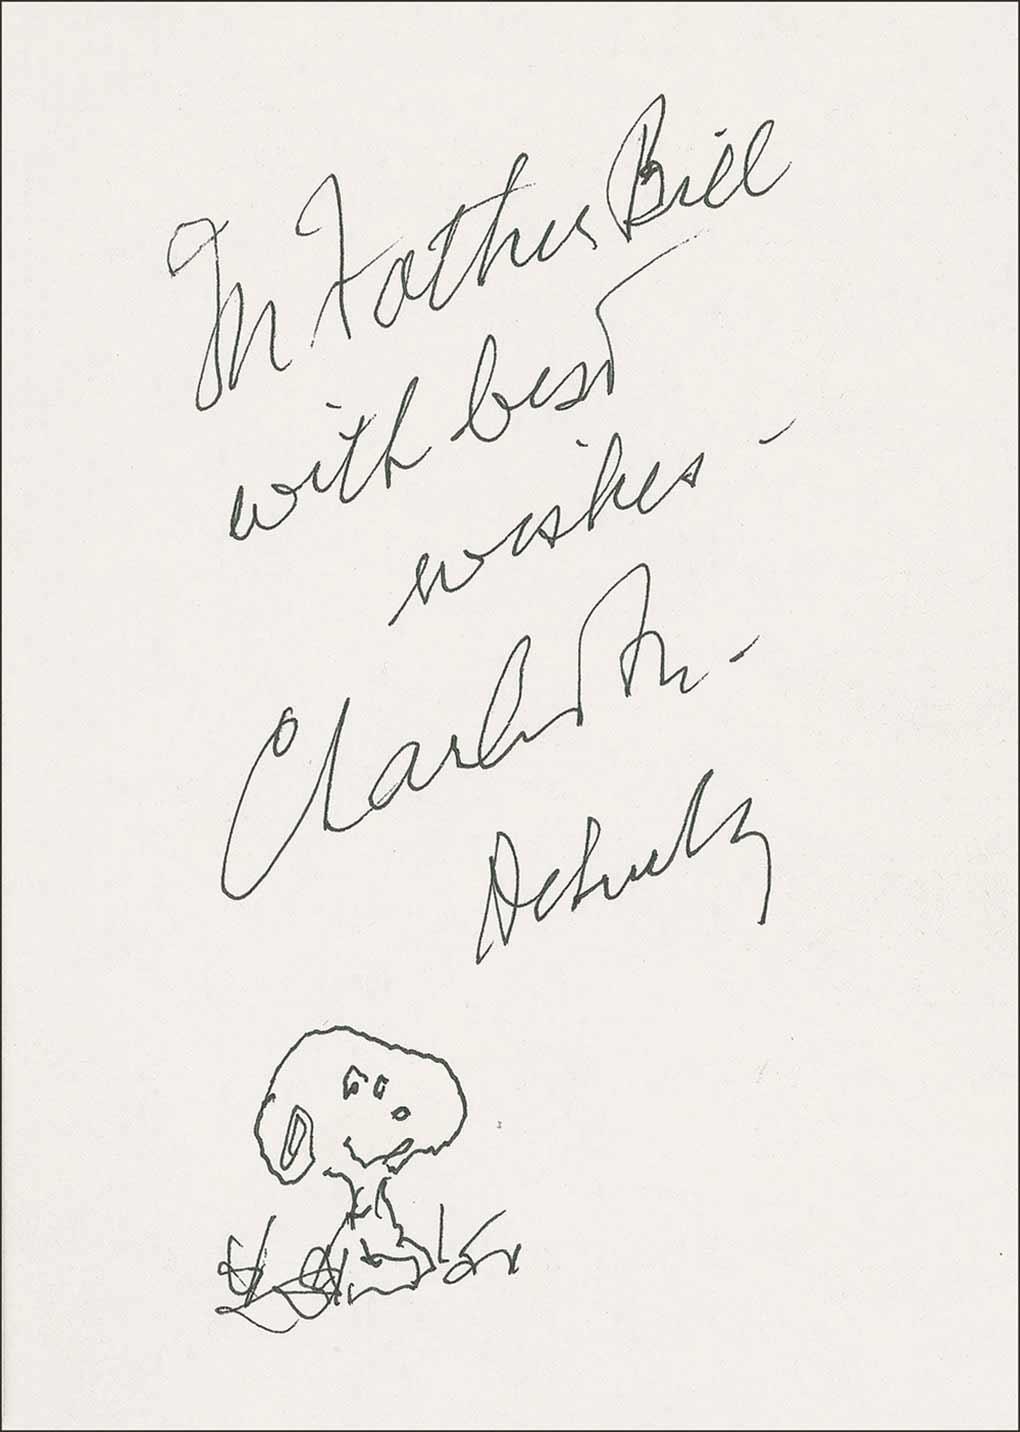 Father Bill
with best
wishes -
Charles M -
Schulz